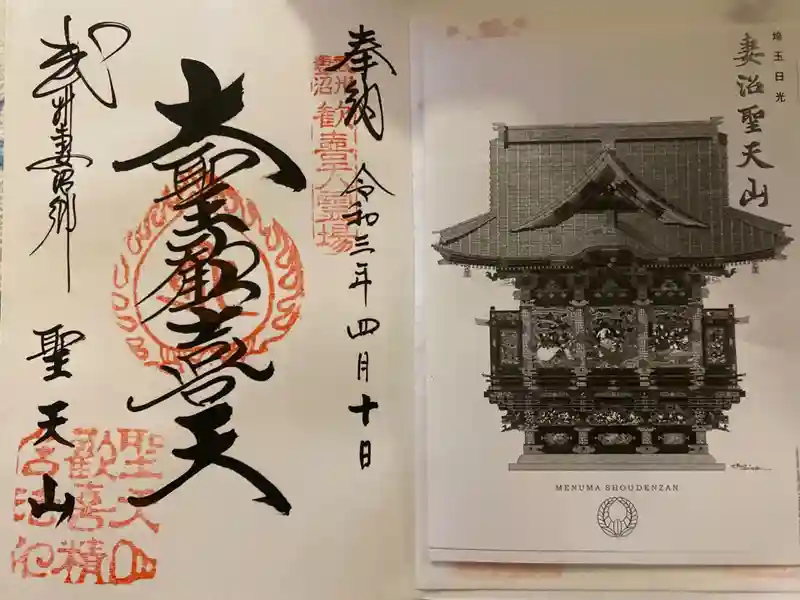 奉納 令和三年四月十日
大聖歓喜天
武州妻沼郷
聖天山
歓喜天霊場
埼玉日光
妻沼聖天山
MENUMA SHOUDENZAN